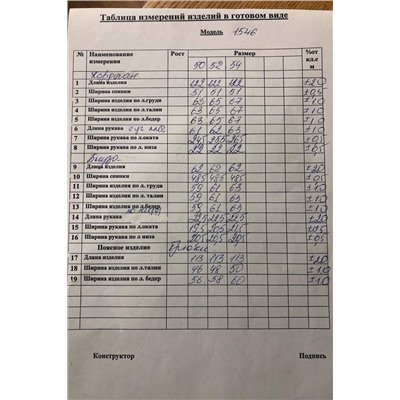 Таблица измерений изделий в готовом виде
Модель 1546
№ Наименование измерения Рост Размер %от кл.с м
50 52 54
Кардиган
1 Длина изделия 122 122 122 ±2,0
2 Ширина спинки 51 51 51 ±0,5
3 Ширина изделия по л.груди 63 65 67 ±1,0
4 Ширина изделия по л.талии 63 65 67 ±1,0
5 Ширина изделия по л.бедер 63 65 67 ±1,0
6 Длина рукава 61 62 63 ±1,0
7 Ширина рукава по л.оката
8 Ширина рукава по л. низа 22 22 22
Блуза
9 Длина изделия 62 62 62 ±2,0
10 Ширина спинки 48,5 48,5 48,5 ±0,5
11 Ширина изделия по л. груди 59 61 63 ±1,0
12 Ширина изделия по л. талии 59 61 63 ±1,0
13 Ширина изделия по л.бедер 59 61 63 ±1,0
14 Длина рукава ±2,0
15 Ширина рукава по л.оката 19,5 20,5 21,5 ±0,5
16 Ширина рукава по л низа 20,5 20,5 20,5 ±0,5
Поясное изделие Брюки
17 Длина изделия 113 113 113 ±2,0
18 Ширина изделия по л.талии 46 48 50 ±1,0
19 Ширина изделия по л. бедер 56 58 60 ±1,0
Конструктор Подпись